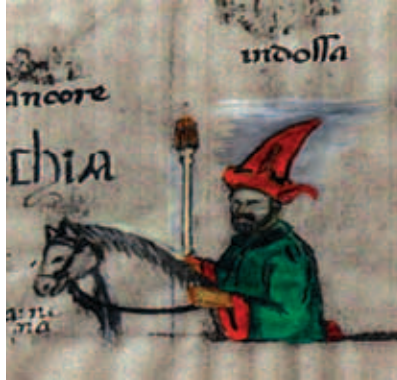 indossa
ancore
chia
na